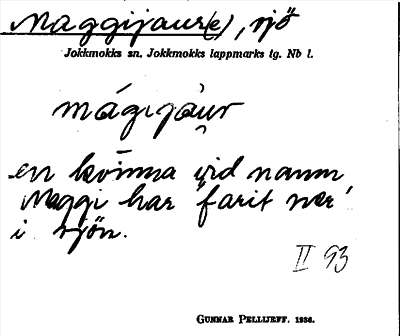 Maggijaur(e), sjö
Jokkmokks sn, Jokkmokks lappmarks tg. Nb l.
mágijàur
en kvinna vid namn
Maggi har "farit ner"
i sjön.
II 93
GUNNAR PELLIJEFF. 1936.